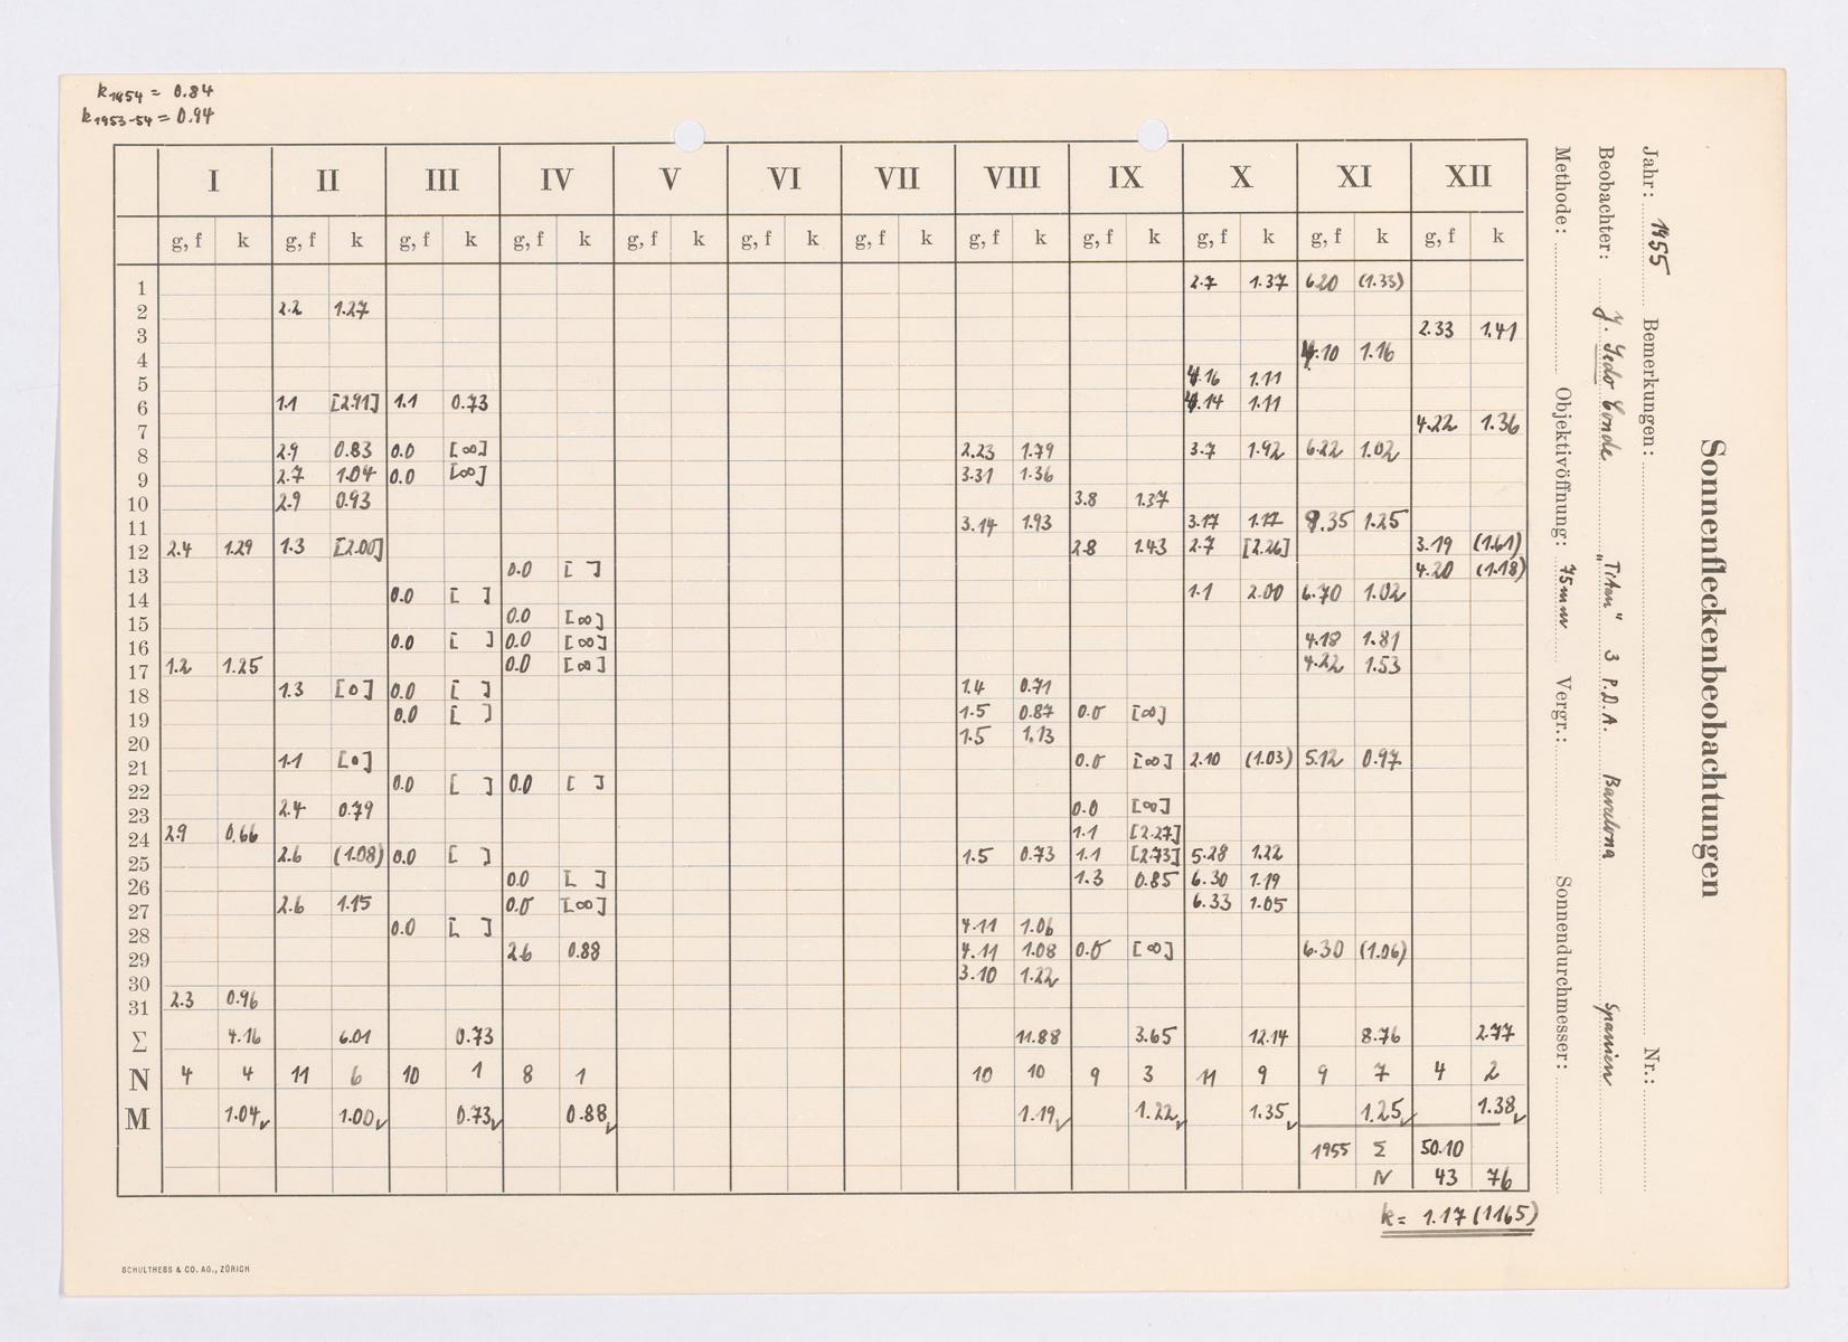 k1954 = 0.84
k1953-54 = 0.94
Sonnenfleckenbeobachtungen
Jahr: 1955 Bemerkungen: Nr.:
Beobachter: "Titan" 3 P.D.A. Barcelona Spanien
Methode: Objektivöffnung: 75mm Vergr.: Sonnendurchmesser:
I II III IV V VI VII VIII IX X XI XII
g, f k g, f k g, f k g, f k g, f k g, f k g, f k g, f k g, f k g, f k g, f k g, f k
1 2.7 1.37 6.20 (1.33)
2 2.2 1.27
3 2.33 1.41
4 4.10 1.16
5 4.16 1.11
6 1.1 [2.91] 1.1 0.73 4.14 1.11
7 4.22 1.36
8 2.9 0.83 0.0 [∞] 2.23 1.79 3.7 1.92 6.22 1.02
9 2.7 1.04 0.0 [∞] 3.31 1.36
10 2.9 0.93 3.8 1.37
11 3.14 1.93 3.17 1.17 9.35 1.25
12 2.4 1.29 1.3 [2.00] 2.8 1.43 2.7 [2.26] 3.19 (1.61)
13 0.0 [ ] 4.20 (1.18)
14 0.0 [ ] 1.1 2.00 6.70 1.02
15 0.0 [∞]
16 0.0 [ ] 0.0 [∞] 4.18 1.81
17 1.2 1.25 0.0 [∞] 4.22 1.53
18 1.3 [0] 0.0 [ ] 1.4 0.71
19 0.0 [ ] 1.5 0.87 0.0 [∞]
20 1.5 1.13
21 1.1 [0] 0.0 [∞] 2.10 (1.03) 5.12 0.97
22 0.0 [ ] 0.0 [ ]
23 2.4 0.79 0.0 [∞]
24 2.9 0.66 1.1 [2.27]
25 2.6 (1.08) 0.0 [ ] 1.5 0.73 1.1 [2.73] 5.28 1.22
26 0.0 [ ] 1.3 0.85 6.30 1.19
27 2.6 1.15 0.0 [∞] 6.33 1.05
28 0.0 [ ] 4.11 1.06
29 2.6 0.88 4.11 1.08 0.0 [∞] 6.30 (1.06)
30 3.10 1.22
31 2.3 0.96
Σ 4.16 6.01 0.73 11.88 3.65 12.14 8.76 2.77
N 4 4 11 6 10 1 8 1 10 10 9 3 11 9 9 7 4 2
M 1.04 1.00 0.73 0.88 1.19 1.22 1.35 1.25 1.38
1955 Σ 50.10
N 43 76
k = 1.17 (1165)
SCHULTHESS & CO. AG., ZÜRICH